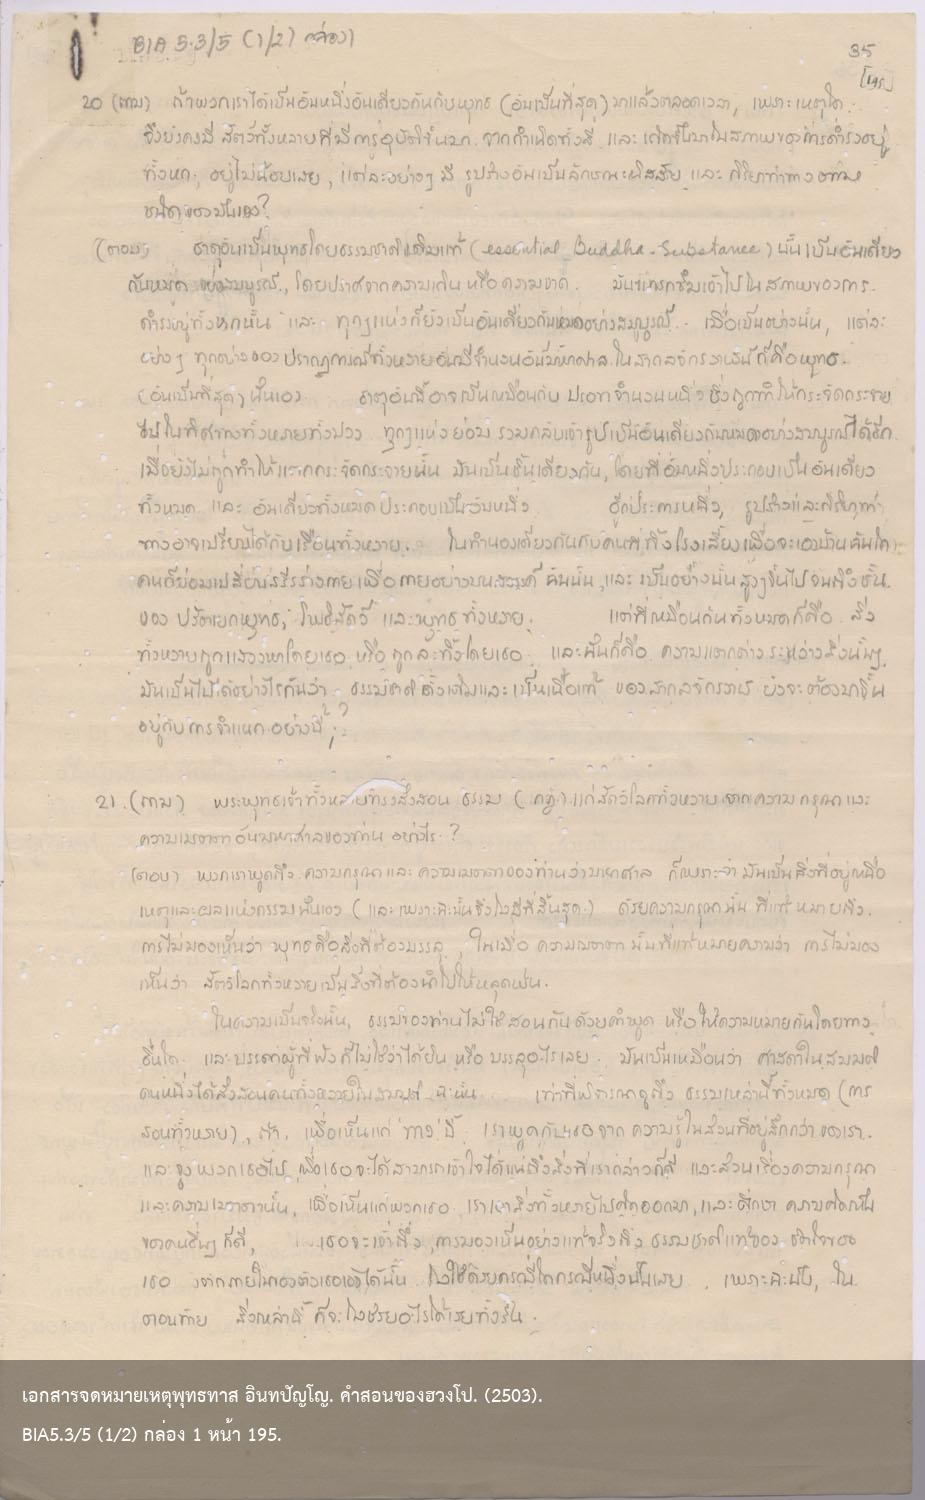 BIA 5.3/5 (1/2) กล่อง 1
35
[195]
20 (ถาม) ถ้าพวกเราได้เป็นอันหนึ่งอันเดียวกันกับพุทธ (อันเป็นที่สุด) มาแล้วตลอดเวลา, เพราะเหตุใด
จึงยังคงมี สัตว์ทั้งหลายที่มีการอุบัติขึ้นมา จากกำเนิดทั้งสี่ และ เกิดขึ้นมาในสภาพของการดำรงอยู่
ทั้งหก, อยู่ไม่น้อยเลย, แต่ละอย่างๆ มี รูปร่างอันเป็นลักษณะนิสสัย และ กิริยาท่าทาง ตาม
ชนิดของมันเอง?
(ตอบ) ธาตุอันเป็นพุทธโดยธรรมชาติเดิมแท้ (essential Buddha-Substance) นั้น เป็นอันเดียว
กันหมด อย่างสมบูรณ์, โดยปราศจากความเกิน หรือความขาด. มันแทรกซึมเข้าไปใน สภาพของการ
ดำรงอยู่ทั้งหกนั้น และ ทุกๆแห่งก็ยังเป็นอันเดียวกันหมดอย่างสมบูรณ์. เมื่อเป็นอย่างนั้น, แต่ละ
อย่างๆ ทุกอย่างของ ปรากฏการณ์ทั้งหลายอันมีจำนวนอันมหาศาล ในสากลจักรวาลนี้ ก็คือพุทธ
(อันเป็นที่สุด) นั้นเอง ธาตุอันนี้อาจเป็นเหมือนกับ ปรอทจำนวนหนึ่ง ซึ่งถูกทำให้กระจัดกระจาย
ไปในทิศทางทั้งหลายทั้งปวง ทุกๆแห่งย่อม รวมกลับเข้ารูปเป็นอันเดียวกันหมดอย่างสมบูรณ์ได้อีก
เมื่อยังไม่ถูกทำให้แตกกระจัดกระจายนั้น มันเป็นชิ้นเดียวกัน, โดยที่อันหนึ่งประกอบเป็นอันเดียว
ทั้งหมด และ อันเดียวทั้งหมดประกอบเป็นอันหนึ่ง อีกประการหนึ่ง, รูปร่างและกิริยาท่า
ทางอาจเปรียบได้กับเรือนทั้งหลาย. ในทำนองเดียวกันกับคนที่ทิ้งโรงเลี้ยงเพื่อจะเอาบ้านคนใด
คนก็ย่อมเปลี่ยนสรีรร่างกาย เพื่อกายอย่างบนสวรรค์ ฉันนั้น, และ เป็นอย่างนั้นสูงๆขึ้นไป จนถึงชั้น
ของ ปรัตเยกพุทธ, โพธิสัตว์ และพุทธทั้งหลาย. แต่ที่เหมือนกันทั้งหมดก็คือ สิ่ง
ทั้งหลายถูกแสวงหาโดยเธอ หรือ ถูกละทิ้งโดยเธอ และนั่นก็คือ ความแตกต่าง ระหว่างสิ่งนั้นๆ
มันเป็นไปได้อย่างไรกันว่า ธรรมชาติดั้งเดิมและเป็นเนื้อแท้ ของสากลจักรวาล ยังจะต้องมาขึ้น
อยู่กับการจำแนก อย่างนี้ ?
21. (ถาม) พระพุทธเจ้าทั้งหลายทรงสั่งสอน ธรรม แก่สัตว์โลกทั้งหลาย จาก ความกรุณา และ
ความเมตตา อันมหาศาลของท่าน อย่างไร ?
(ตอบ) พวกเราพูดถึง ความกรุณา และ ความเมตตาของท่านว่ามหาศาล ก็เพราะว่า มันเป็นสิ่งที่อยู่เหนือ
เหตุและผลแห่งกรรมนั้นเอง (และเพราะฉะนั้นจึงไม่มีที่สิ้นสุด) ด้วยความกรุณานั้น ที่แท้ หมายถึง
การไม่มองเห็นว่า พุทธคือสิ่งที่ต้องบรรลุ, ในเมื่อ ความเมตตา นั้นที่แท้หมายความว่า การไม่มอง
เห็นว่า สัตว์โลกทั้งหลายเป็นสิ่งที่ต้องนำไปให้หลุดพ้น.
ในความเป็นจริงนั้น, ธรรมของท่านไม่ใช่สอนกันด้วยคำพูด หรือให้ความหมายกันโดยทาง
อื่นใด และบรรดาผู้ที่ฟังก็ไม่ใช่ว่าได้ยิน หรือบรรลุอะไรเลย. มันเป็นเหมือนว่า ศาสดาในสมมติ
คนหนึ่งได้สั่งสอนคนทั้งหลายในสมมติ ฉะนั้น เท่าที่พิจารณาดูถึง ธรรมเหล่านี้ทั้งหมด (การ
สอนทั้งหลาย), ถ้า, เพื่อเห็นแก่ ทาง นี้ เราพูดกับเธอจาก ความรู้ในส่วนที่อยู่ลึกกว่า ของเรา.
และจูงพวกเธอไป, เธอจะได้สามารถเข้าใจได้แน่ถึงสิ่งที่เรากล่าวก็ดี และส่วนเรื่องความกรุณา
และความเมตตานั้น, เพื่อเห็นแก่พวกเธอ เราเอาสิ่งทั้งหลายไปคิดออกมา, และศึกษา ความคิดเห็น
ของคนอื่นๆ ก็ดี, เธอจะเข้าถึง การมองเห็นอย่างแท้จริงถึง ธรรมชาติแท้ของ จิตใจของ
เธอ จากภายในของตัวเธอเองได้นั้น ไม่ใช่ด้วยกรณีใดกรณีหนึ่งนั้นเลย. เพราะฉะนั้น, ใน
ตอนท้าย สิ่งเหล่านี้ ก็จะไม่ช่วยอะไรได้เลยทั้งสิ้น.
เอกสารจดหมายเหตุพุทธทาส อินทปัญโญ. คำสอนของฮวงโป. (2503).
BIA5.3/5 (1/2) กล่อง 1 หน้า 195.